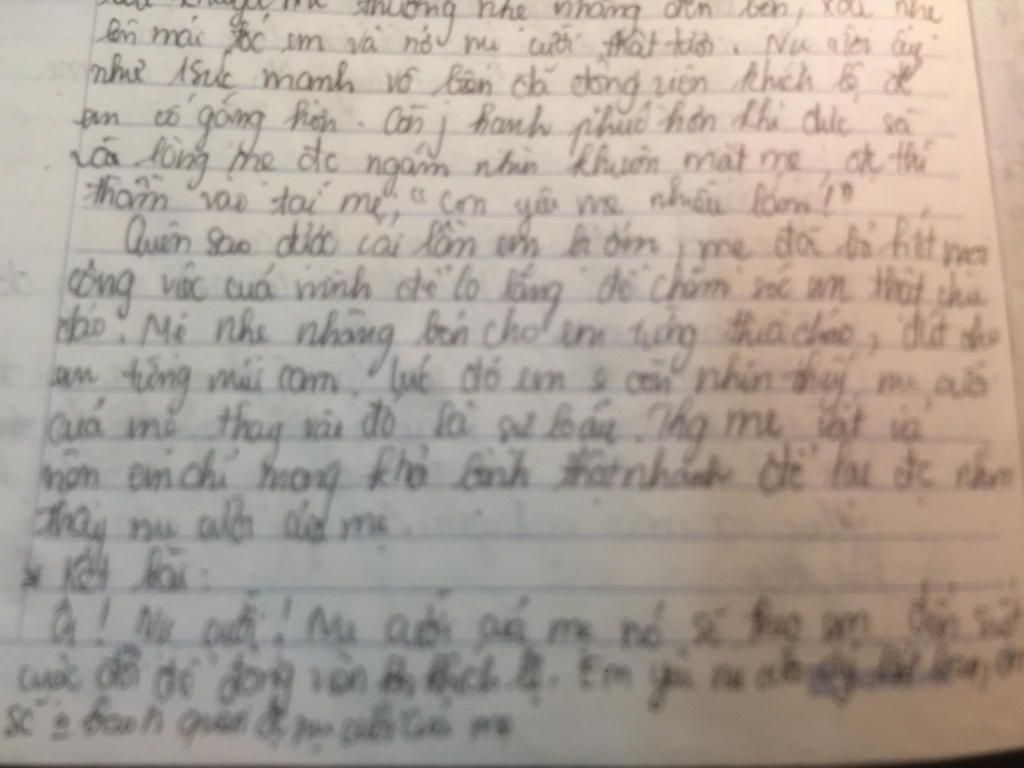 thường nhẹ nhàng đến bên, xoa nhẹ
lên mái tóc em và nở nụ cười thật tươi. Nụ cười ấy
như 1 sức mạnh vô biên đã động viên khích lệ để
em cố gắng hơn. Còn j hạnh phúc hơn khi được sà
vào lòng mẹ đc ngắm nhìn khuôn mặt mẹ, đc thì
thầm vào tai mẹ, "con yêu mẹ nhiều lắm!"
Quên sao được cái lần em bị ốm, mẹ đã bỏ hết mọi
công việc của mình để lo lắng để chăm sóc em thật chu
đáo. Mẹ nhẹ nhàng bón cho em từng thìa cháo, đút cho
em từng múi cam. Lúc đó em còn nhìn thấy nụ cười
của mẹ thay vào đó là sự lo âu. Thg mẹ vất vả
nên em chỉ mong khỏi bệnh thật nhanh để lại đc nhìn
thấy nụ cười của mẹ.
* Kết bài:
Ôi! Nụ cười! Nụ cười của mẹ nó sẽ theo em đến suốt
cuộc đời để động viên khích lệ. Em yêu nụ cười
sẽ quên đc nụ cười của mẹ